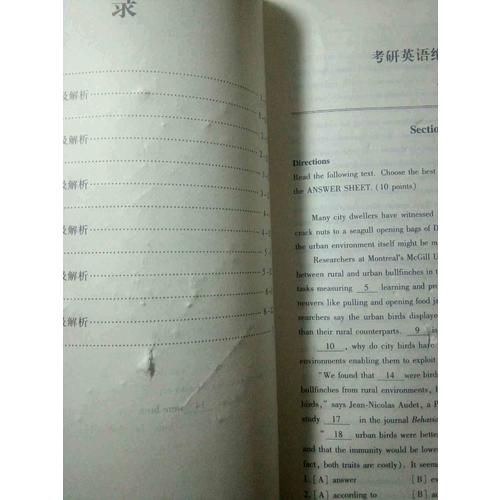 录
1-
及解析 1-
2-
及解析 2-
3-
及解析 3-
4-
及解析 4-
5-
及解析 5-
6-
及解析 6-
考研英语
Section
Directions
Read the following text. Choose the best
the ANSWER SHEET. (10 points)
Many city dwellers have witnessed
crack nuts to a seagull opening bags of D
the urban environment itself might be m
Researchers at Montreal's McGill U
between rural and urban bullfinches in t
tasks measuring 5 learning and pr
neuvers like pulling and opening food j
searchers say the urban birds displaye
than their rural counterparts. 9 is
10 , why do city birds have
environments enabling them to exploit
"We found that 14 were birds
bullfinches from rural environments,
birds," says Jean-Nicolas Audet, a P
study 17 in the journal Behavio
" 18 urban birds were better
and that the immunity would be lower
fact, both traits are costly). It seem
1. [A] answer [B] ev
2. [A] according to [B] a